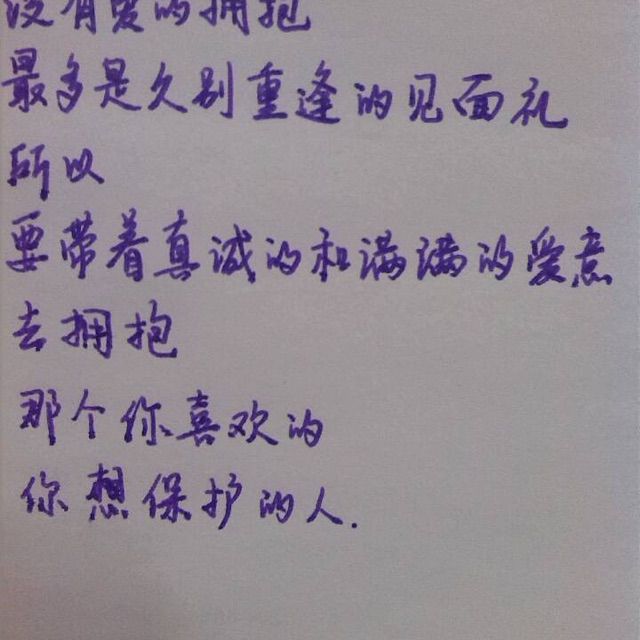 没有爱的拥抱
最多是久别重逢的见面礼
所以
要带着真诚的和满满的爱意
去拥抱
那个你喜欢的
你想保护的人.